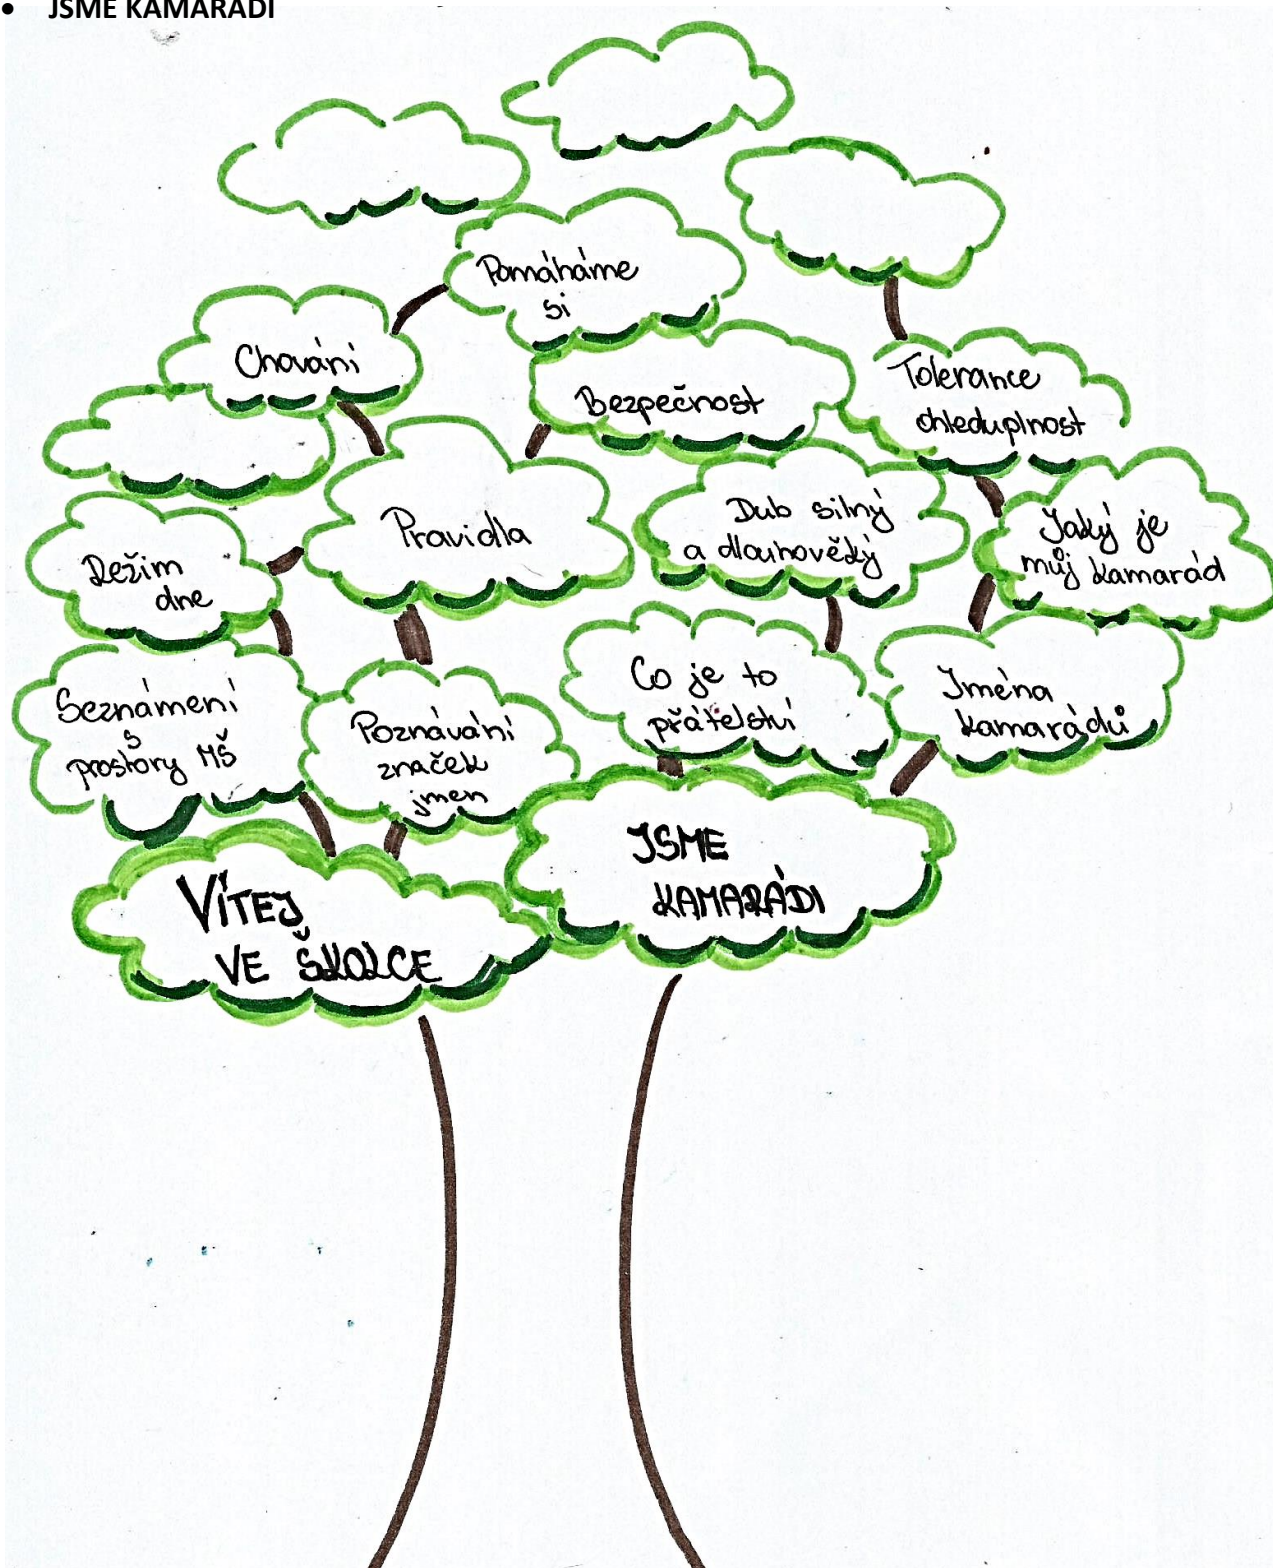 • JSME KAMARÁDI
Pomáháme
si
Chování
Bezpečnost
Tolerance
ohleduplnost
Pravidla
Dub silný
a dlouhověký
Jaký je
můj kamarád
Režim
dne
Seznámení
s
prostory MŠ
Poznávání
značek
jmen
Co je to
přátelství
Jména
kamarádů
JSME
KAMARÁDI
VÍTEJ
VE ŠKOLCE